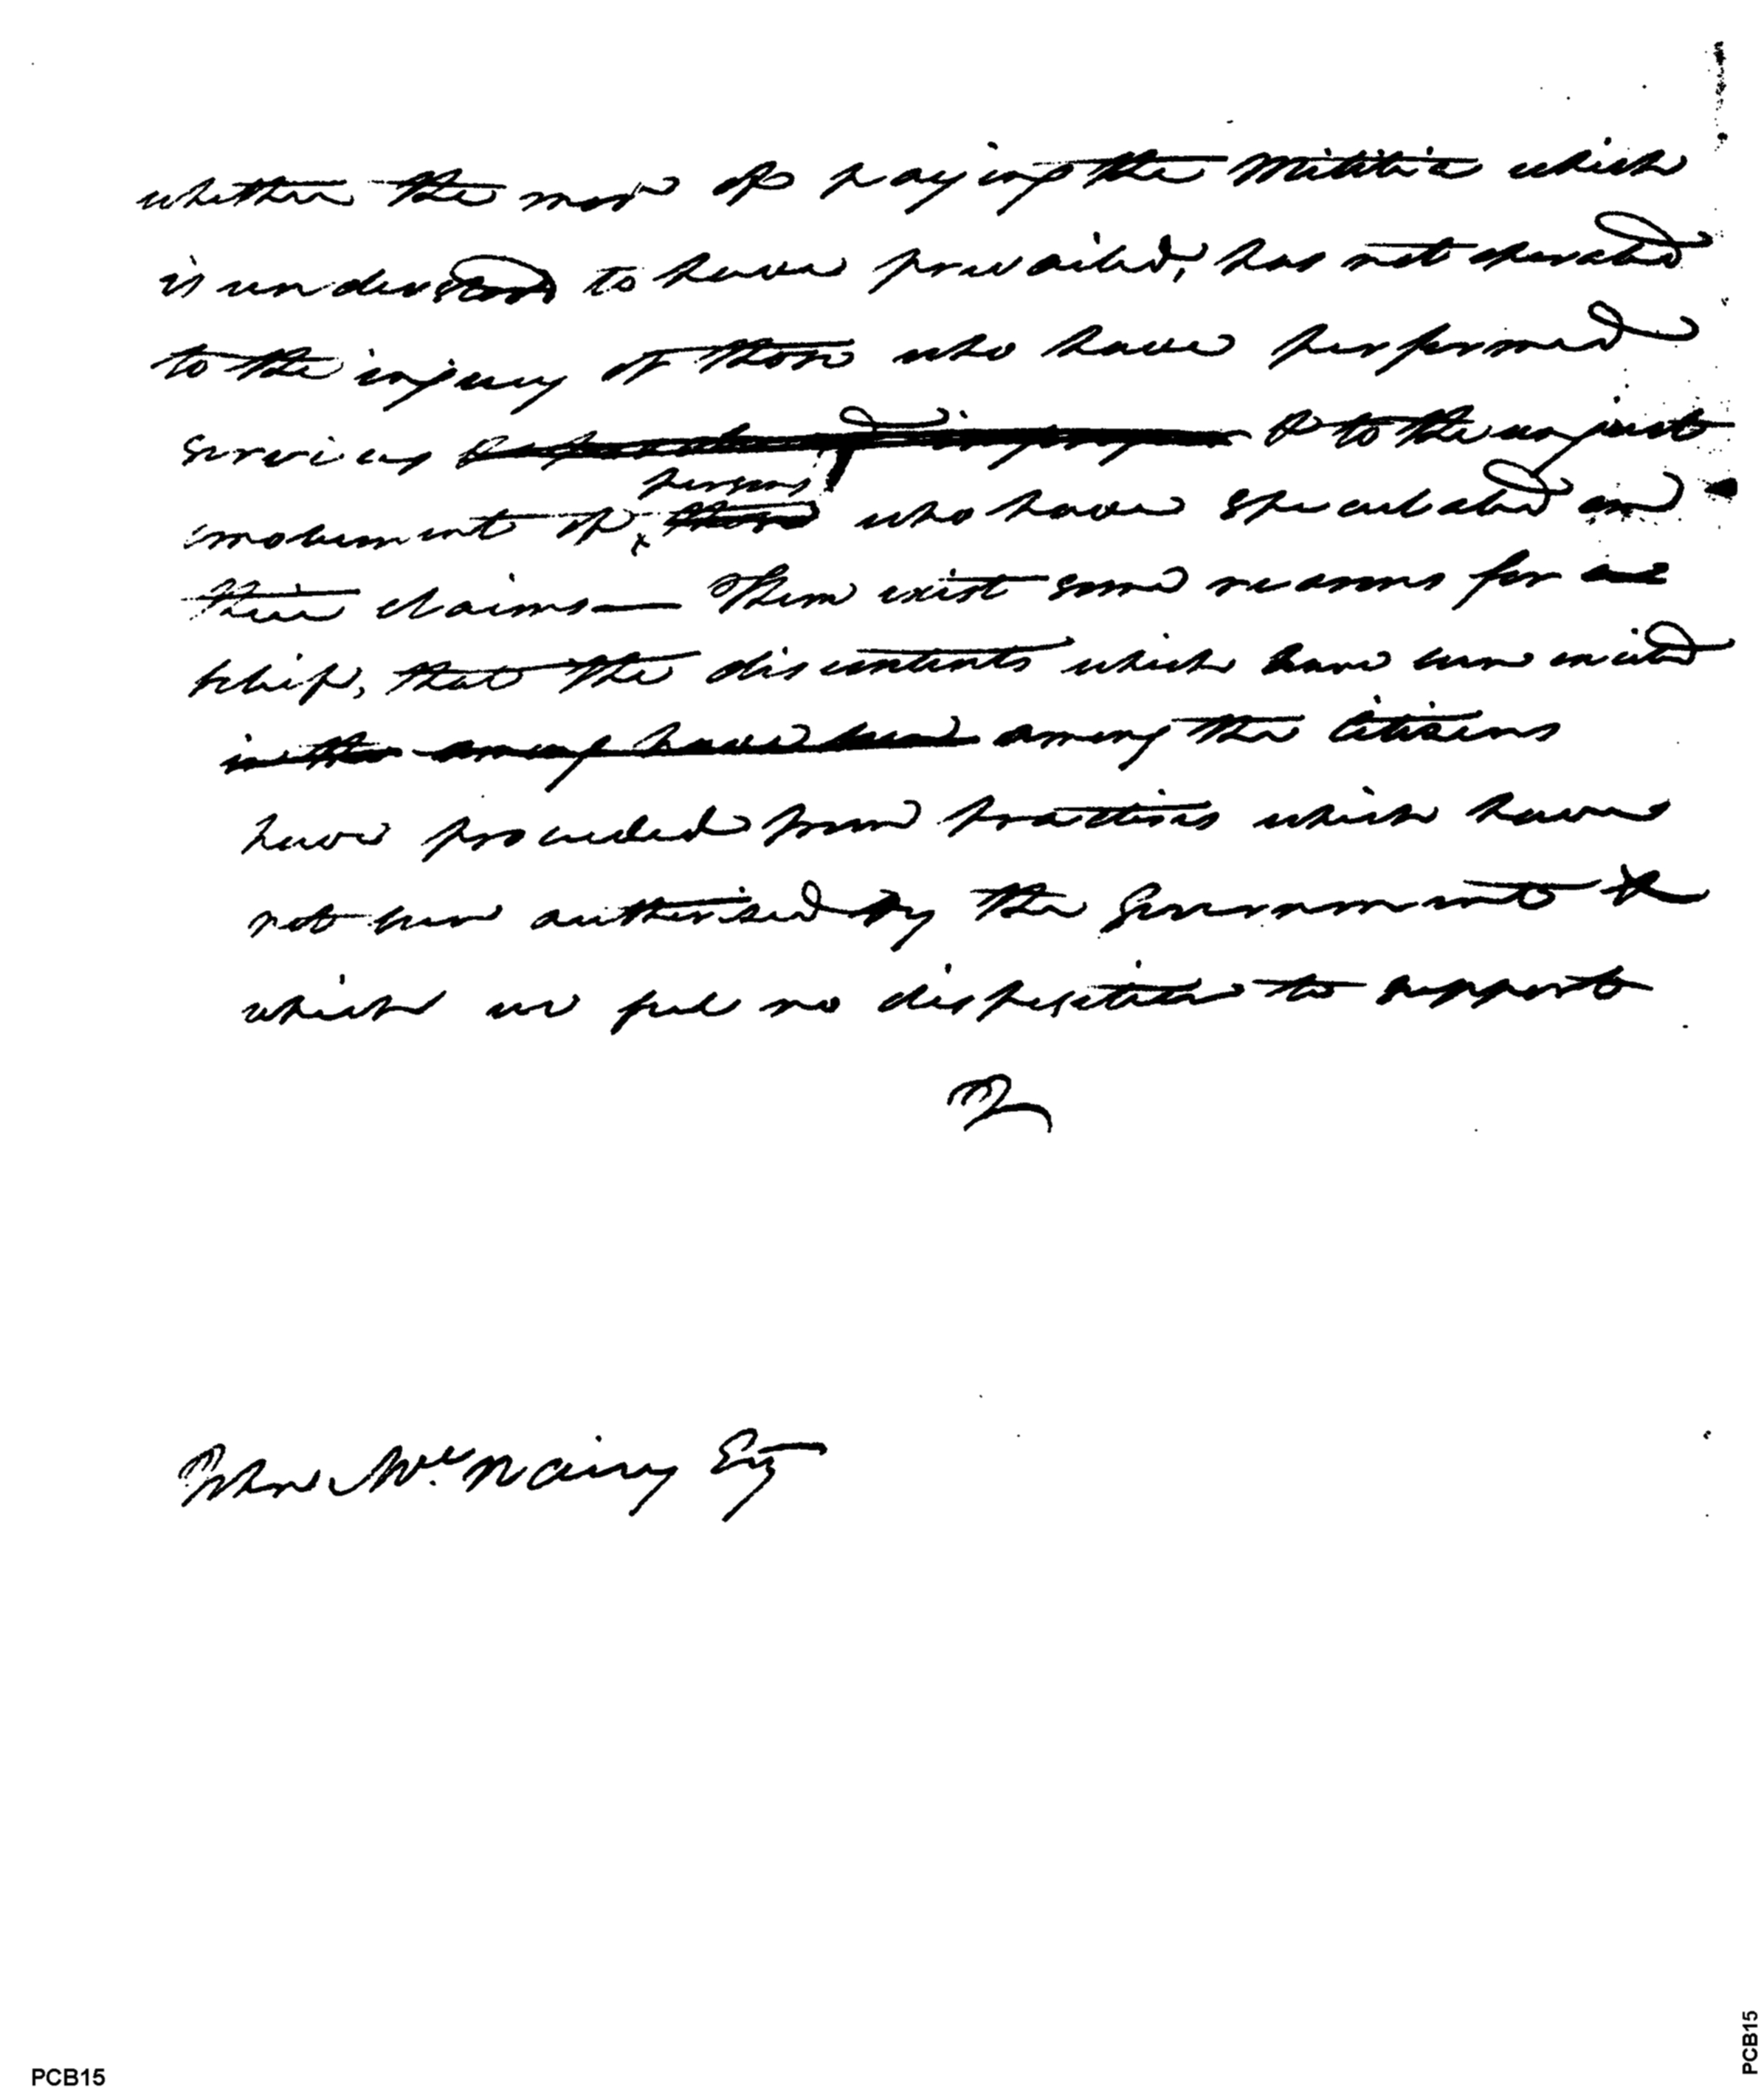 whether the mode of paying the Militia which
is understood to have prevailed, has not operated
to the injury of those who have performed
services & to the unjust
persons
emolument of those who have speculated on
their claims — There exist some reasons for be
lief, that the discontents which have been excited
in the army have been among the Citizens
have proceeded from practices which have
not been authorised by the Government &
which we feel no disposition to support
John McNairy Esq
PCB15
PCB15